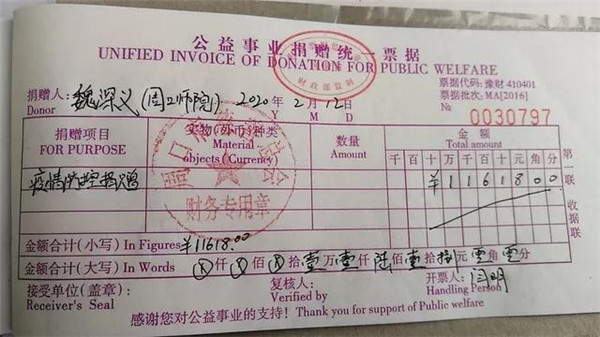 公益事业捐赠统一票据
UNIFIED INVOICE OF DONATION FOR PUBLIC WELFARE
财政部监制
捐赠人: 魏深义(周口师院) 2020 年 2 月 12 日 票据代码: 豫财 410401
Donor Y M D 票据批次: MA[2016]
№ 0030797
捐赠项目 实物(外币)种类 数量 金额
FOR PURPOSE Material objects (Currency) Amount Total amount
千 百 十 万 千 百 十 元 角 分
疫情防控捐赠 ¥ 1 1 6 1 8 0 0
财务专用章
第一联 收据联
金额合计(小写) In Figures ¥11618.00
金额合计(大写) In Words ⊗ 仟 ⊗ 佰 ⊗ 拾 壹 万 壹 仟 陆 佰 壹 拾 捌 元 零 角 零 分
接受单位(盖章): 复核人: 开票人: 闫明
Receiver's Seal Verified by Handling Person
感谢您对公益事业的支持! Thank you for support of Public welfare